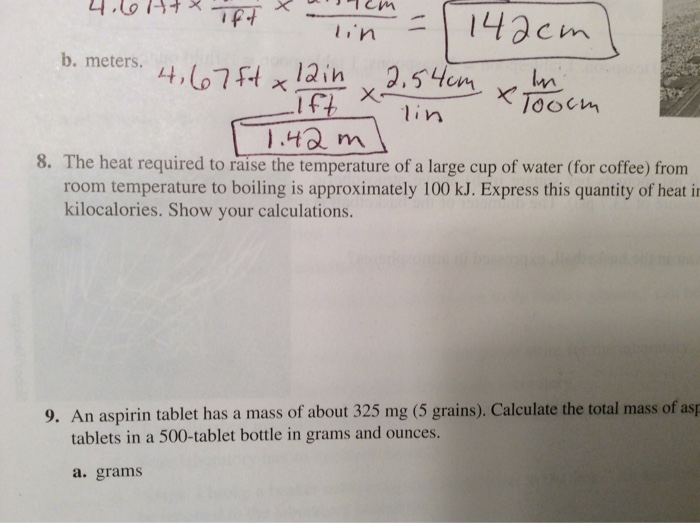 4.67ft x
1ft x
1in = 142cm
b. meters. 4.67ft x 12in x 2.54cm x 1m
1ft 1in 100cm
1.42 m
8. The heat required to raise the temperature of a large cup of water (for coffee) from
room temperature to boiling is approximately 100 kJ. Express this quantity of heat in
kilocalories. Show your calculations.
9. An aspirin tablet has a mass of about 325 mg (5 grains). Calculate the total mass of asp
tablets in a 500-tablet bottle in grams and ounces.
a. grams